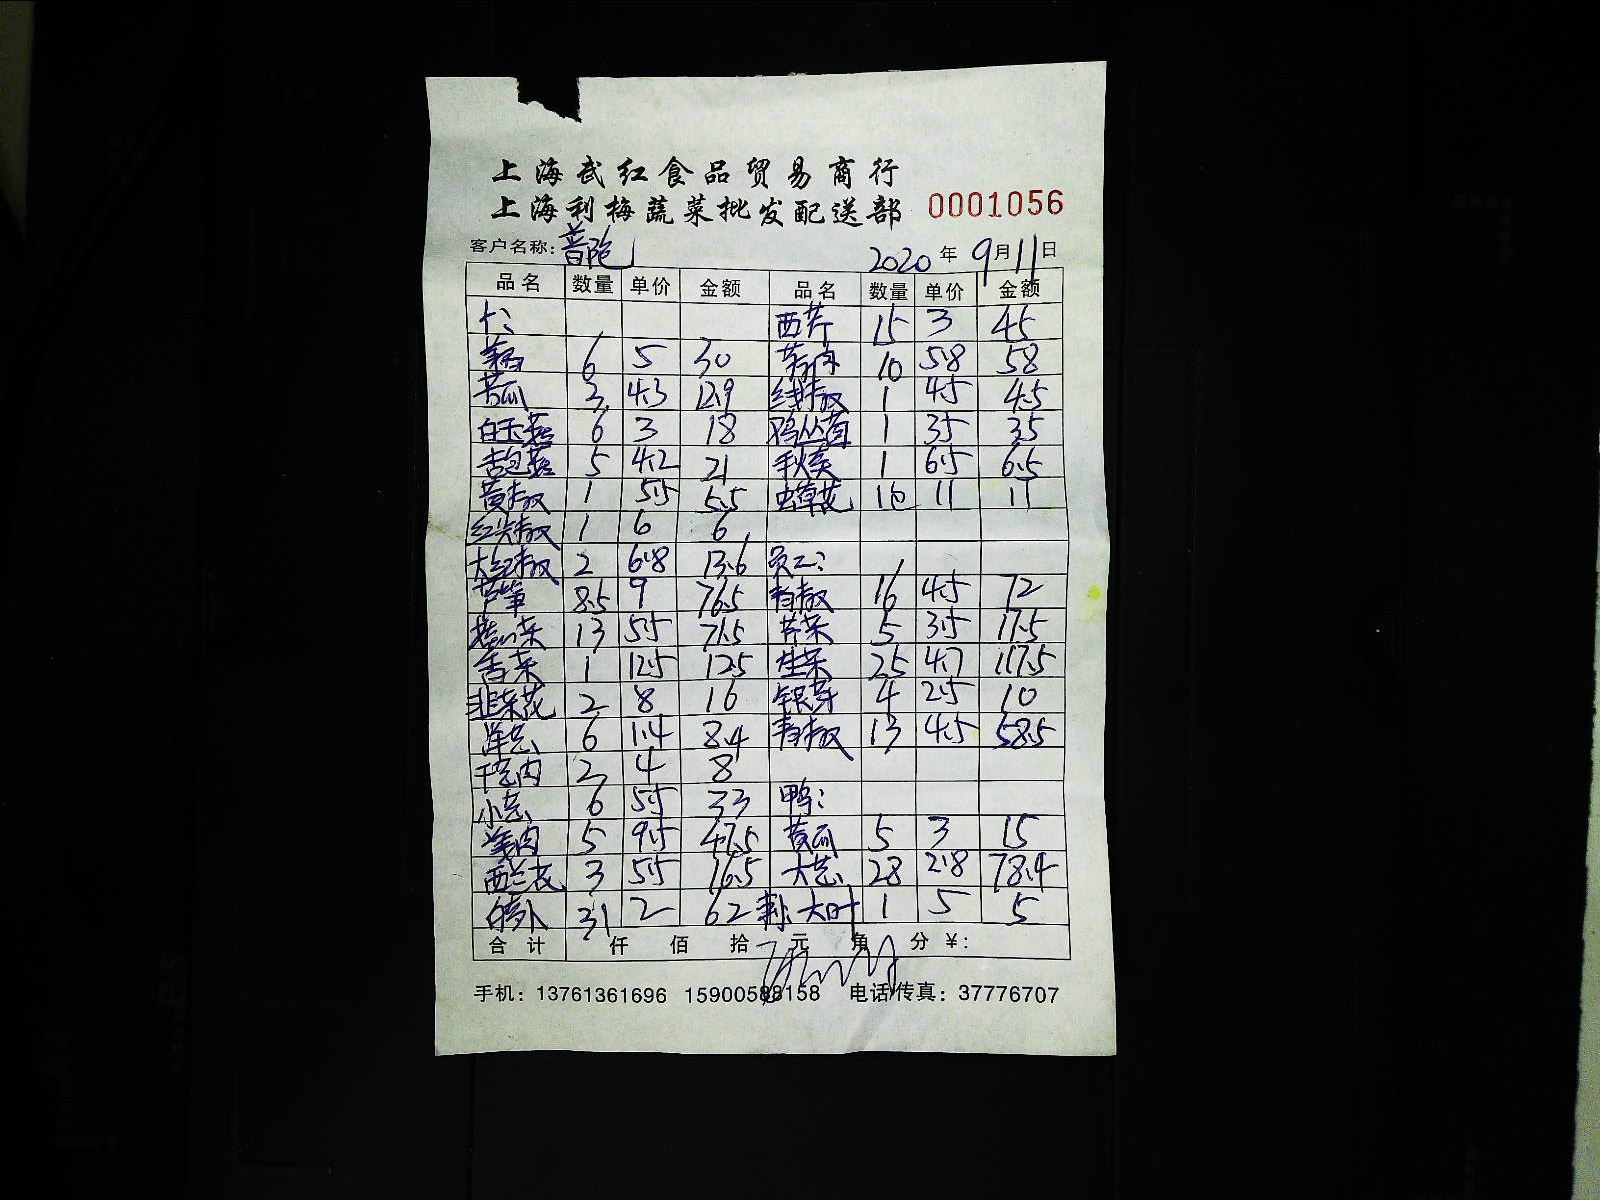 上海武红食品贸易商行
上海利梅蔬菜批发配送部 0001056
客户名称: 普陀 2020年9月11日
品名 数量 单价 金额 品名 数量 单价 金额
西芹 15 3 45
6 5 30 10 5.8 58
苦瓜 3 4.3 12.9 线椒 1 4.5 4.5
白玉菇 6 3 18 鸡丛菌 1 35 35
杏包菇 5 4.2 21 1 6.5 6.5
黄椒 1 5.5 5.5 虫草花 11 11
红尖椒 1 6 6
大红椒 2 6.8 13.6 员工:
芦笋 8.5 9 76.5 青椒 16 4.5 72
13 5.5 71.5 芹菜 5 3.5 17.5
香菜 1 12.5 12.5 生菜 25 4.7 117.5
韭菜花 2 8 16 银芽 4 2.5 10
洋葱 6 1.4 8.4 青椒 13 4.5 58.5
2 4 8
小葱 6 5.5 33 鸭:
姜肉 5 9.5 47.5 黄瓜 5 3 15
西兰花 3 5.5 16.5 大葱 28 2.8 78.4
白萝卜 31 2 62 大叶 1 5 5
合计 仟 佰 拾 元 角 分 ¥:
手机: 13761361696 15900588158 电话/传真: 37776707